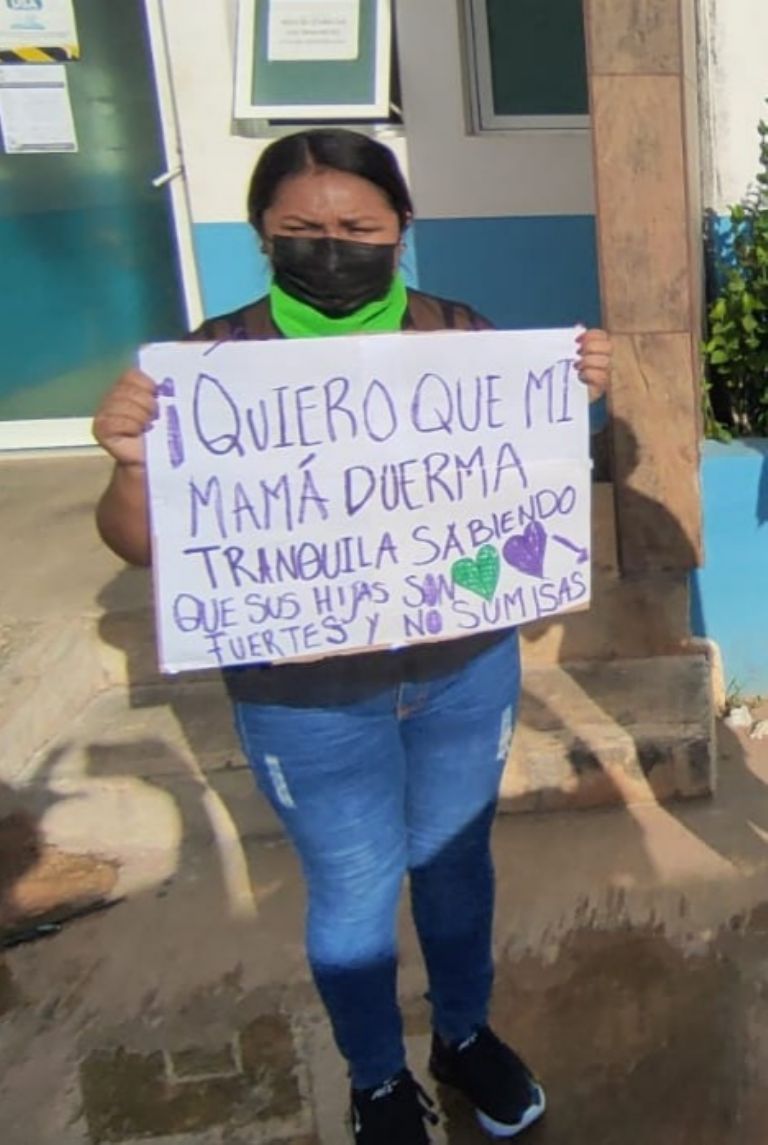 ¡QUIERO QUE MI
MAMÁ DUERMA
TRANQUILA SABIENDO
QUE SUS HIJAS SON
FUERTES Y NO SUMISAS